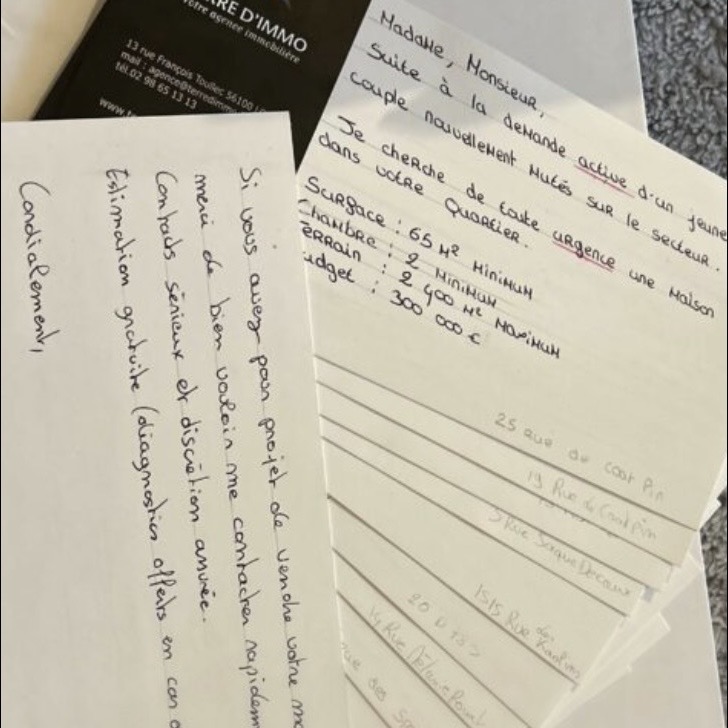 RRE D'IMMO
votre agence immobilière
13 rue François Toullec 56100
mail : agence@terredimmo
tél.02 98 65 13 13
www.
Madame, Monsieur,
Suite à la demande active d'un jeune
couple nouvellement mutés sur le secteur.
Je cherche de toute urgence une maison
dans votre quartier.
Surface : 65 m² minimum
Chambre : 2 minimum
Terrain : 2 400 m² maximum
udget : 300 000 €
25 rue de coat Pin
19 Rue de Coatpin
5 Rue
1515 Rue des
20
14 Rue
rue des
Si vous avez pour projet de vendre votre
merci de bien vouloir me contacter
Contacts sérieux et discrétion assurée.
Estimation gratuite (diagnostics offerts en cas
Cordialement,